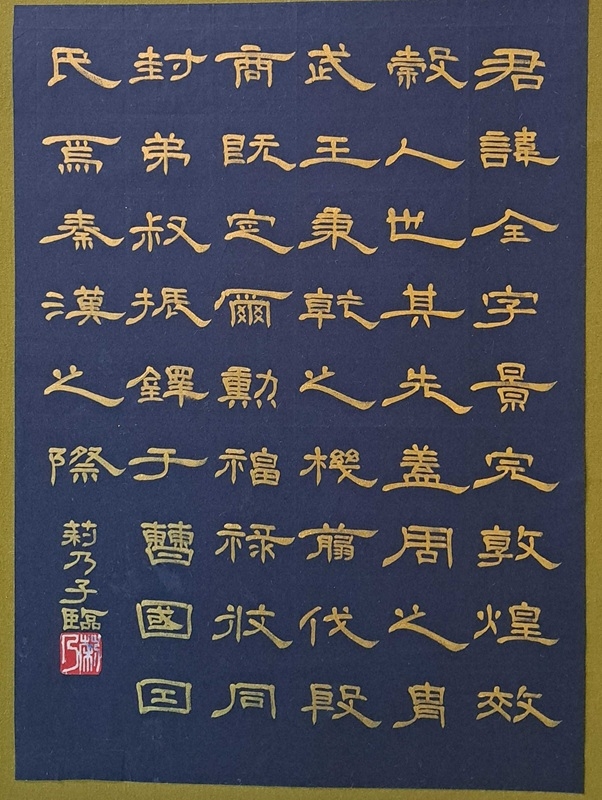 君諱全字景完敦煌效
穀人也其先蓋周之胄
武王秉乾之機翦伐殷
商既定爾勳福祿攸同
封弟叔振鐸于曹國因
氏焉秦漢之際
莉乃子臨
莉乃